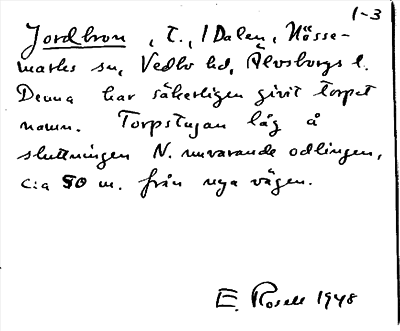 1-3
Jordbron, t., I Dalen, Nösse-
marks sn, Vedbo hd, Älvsborgs l.
Denna har säkerligen givit torpet
namn. Torpstugan låg å
sluttningen N. nuvarande odlingen,
c:a 50 m. från nya vägen.
E. Rosell 1948